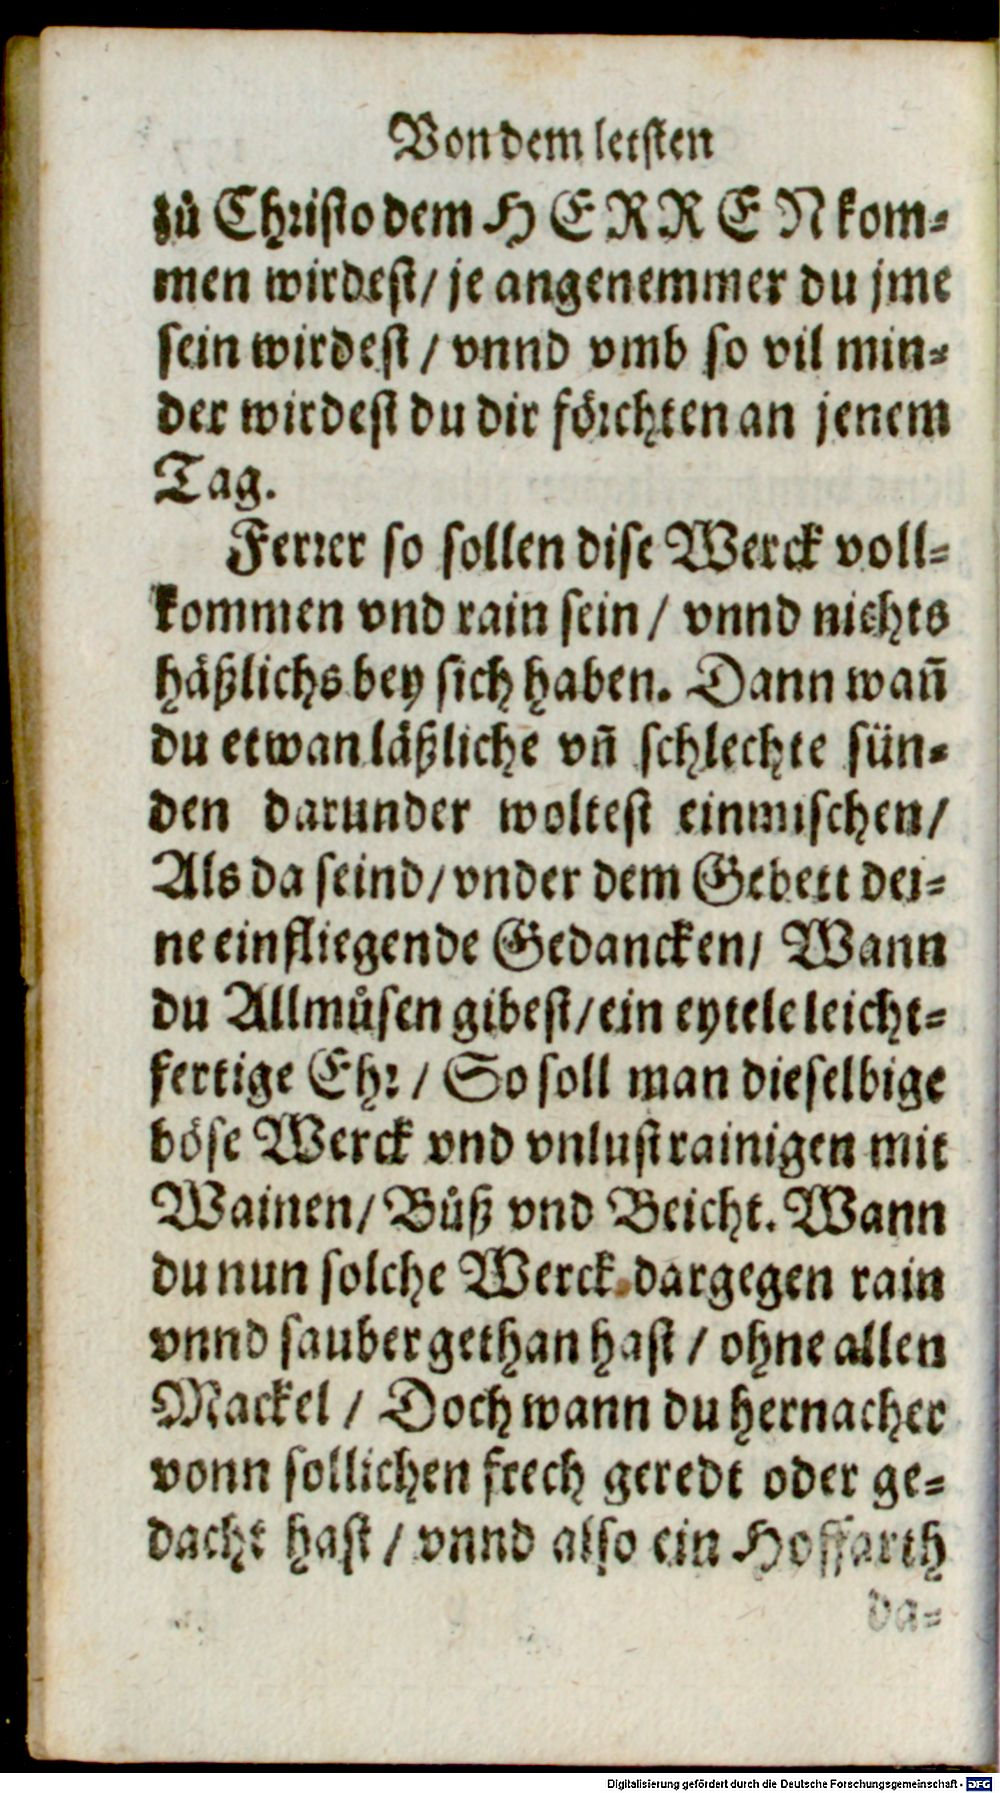 Von dem letsten
zů Christo dem HERREN kom⸗
men wirdest/ je angenemmer du jme
sein wirdest / vnnd vmb so vil min⸗
der wirdest du dir förchten an jenem
Tag.
Ferrer so sollen dise Werck voll⸗
kommen vnd rain sein / vnnd nichts
häßlichs bey sich haben. Dann wañ
du etwan läßliche vñ schlechte sün⸗
den darunder woltest einmischen/
Als da seind/ vnder dem Gebett dei⸗
ne einfliegende Gedancken/ Wann
du Allmůsen gibest/ ein eytele leicht⸗
fertige Ehr / So soll man dieselbige
böse Werck vnd vnlust rainigen mit
Wainen/ Bůß vnd Beicht. Wann
du nun solche Werck dargegen rain
vnnd sauber gethan hast / ohne allen
Mackel / Doch wann du hernacher
vonn sollichen frech geredt oder ge⸗
dacht hast / vnnd also ein Hoffarth
da⸗
Digitalisierung gefördert durch die Deutsche Forschungsgemeinschaft - DFG